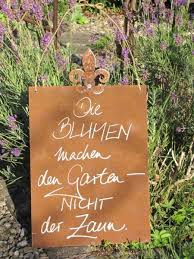 Die
BLUMEN
machen
den Garten–
NICHT
der Zaun.